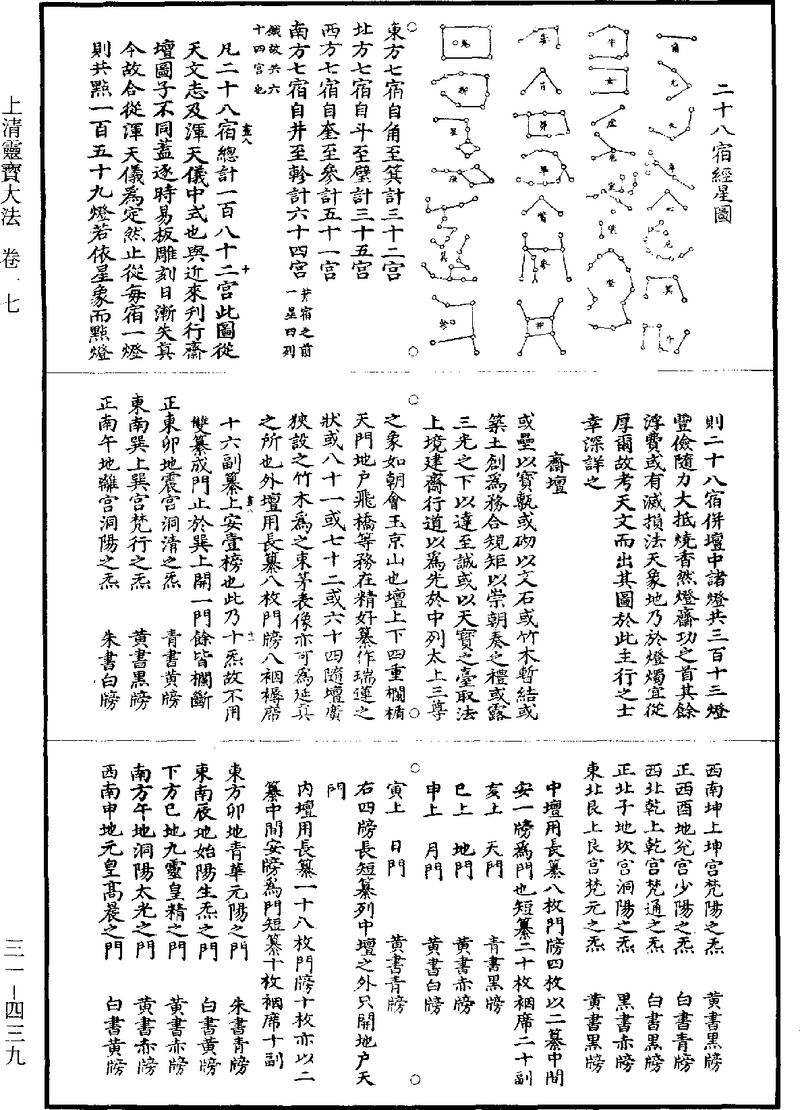 上清靈寶大法 卷一七
三一-四三九
二十八宿經星圖
角
亢
氐
房
心
尾
箕
斗
牛
女
虛
危
室
壁
奎
婁
胃
昴
畢
觜
參
井
鬼
柳
星
張
翼
軫
東方七宿自角至箕計三十二宮
北方七宿自斗至壁計三十五宮
西方七宿自奎至參計五十一宮
南方七宿自井至軫計六十四宮井宿之前一星四列
鐵故共六十四宮也
凡二十八宿總計一百八十二宮此圖從
天文志及渾天儀中式也與近來刊行齋
壇圖子不同蓋逐時易板雕刻日漸失真
今故合從渾天儀為定然止從每宿一燈
則共點一百五十九燈若依星象而點燈
則二十八宿併壇中諸燈共三百十三燈
豐儉隨力大抵燒香然燈齋功之首其餘
浮費或有減損法天象地乃於燈燭宜從
厚爾故考天文而出其圖於此主行之士
幸深詳之
齋壇
或壘以寶甎或砌以文石或竹木暫結或
築土創為務合規矩以崇朝奏之禮或露
三光之下以達至誠或以天寶之臺取法
上境建齋行道以為先於中列太上三尊
之象如朝會玉京山也壇上下四重欄楯
天門地戶飛橋等務在精好纂作瑞蓮之
狀或八十一或七十二或六十四隨壇廣
狹設之竹木為之束茅表像亦可為延真
之所也外壇用長纂八枚門牓八裀褥席
十六副纂上安壹榜也此乃十炁故不用
雙纂成門止於巽上開一門餘皆欄斷
正東卯地震宮洞清之炁 青書黃牓
東南巽上巽宮梵行之炁 黃書黑牓
正南午地離宮洞陽之炁 朱書白牓
西南坤上坤宮梵陽之炁 黃書黑牓
正西酉地兌宮少陽之炁 白書青牓
西北乾上乾宮梵通之炁 白書黑牓
正北子地坎宮洞陽之炁 黑書赤牓
東北艮上艮宮梵元之炁 黃書黑牓
中壇用長纂八枚門牓四枚以二纂中間
安一牓為門也短纂二十枚裀席二十副
亥上 天門 青書黑牓
巳上 地門 黃書赤牓
申上 月門 黃書白牓
寅上 日門 黃書青牓
右四牓長短纂列中壇之外只開地戶天
門
內壇用長纂一十八枚門牓十枚亦以二
纂中間安牓為門短纂十枚裀席十副
東方卯地青華元陽之門 朱書青牓
東南辰地始陽生炁之門 白書黃牓
下方巳地九靈皇精之門 黃書赤牓
南方午地洞陽太光之門 黃書赤牓
西南申地元皇高晨之門 白書黃牓